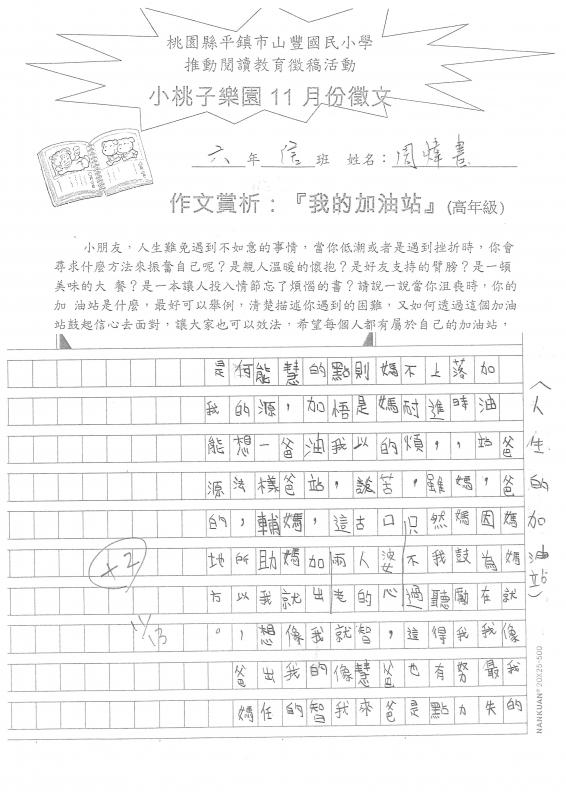 桃園縣平鎮市山豐國民小學
推動閱讀教育徵稿活動
小桃子樂園 11 月份徵文
六年信班 姓名：周煒書
作文賞析：『我的加油站』(高年級)
小朋友，人生難免遇到不如意的事情，當你低潮或者是遇到挫折時，你會
尋求什麼方法來振奮自己呢？是親人溫暖的懷抱？是好友支持的臂膀？是一頓
美味的大 餐？是一本讓人投入情節忘了煩惱的書？請說一說當你沮喪時，你的
加 油站是什麼，最好可以舉例，清楚描述你遇到的困難，又如何透過這個加油
站鼓起信心去面對，讓大家也可以效法，希望每個人都有屬於自己的加油站，
〈人生的加油站〉
爸爸媽媽就像我的
加油站，因為在我最失
落時，媽媽鼓勵我努力
上進，雖然我聽得有點
不耐煩，只不過這也是
媽媽的苦口婆心，爸爸
則是以說古人的智慧來
點悟我，這兩老就像我
的加油站，加出我的智
慧，爸爸媽媽就像我的
能源一樣輔助我想出任
何的想法，所以爸媽
是我能源的地方。
+2
11/13
NANKUAN® 20X25=500